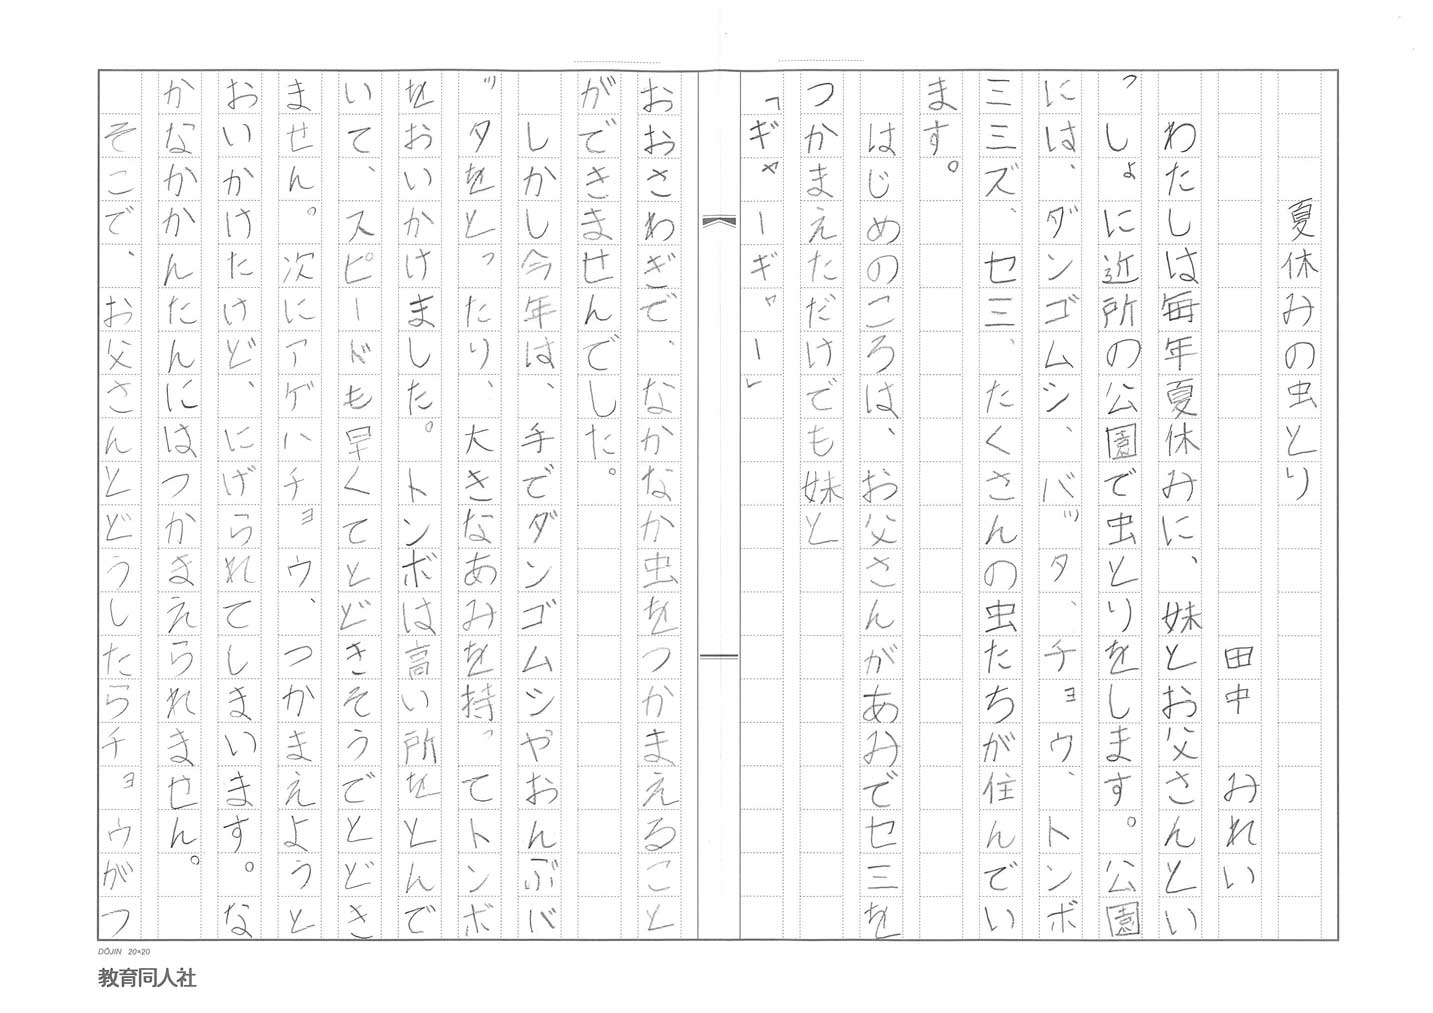 夏休みの虫とり
田中 みれい
わたしは毎年夏休みに、妹とお父さんとい
っしょに近所の公園で虫とりをします。公園
には、ダンゴムシ、バッタ、チョウ、トンボ
ミミズ、セミ、たくさんの虫たちが住んでい
ます。
はじめのころは、お父さんがあみでセミを
つかまえただけでも妹と
「ギャーギャー」
おおさわぎで、なかなか虫をつかまえること
ができませんでした。
しかし今年は、手でダンゴムシやおんぶバ
ッタをとったり、大きなあみを持ってトンボ
をおいかけました。トンボは高い所をとんで
いて、スピードも早くてとどきそうでとどき
ません。次にアゲハチョウ、つかまえようと
おいかけたけど、にげられてしまいます。な
かなかかんたんにはつかまえられません。
そこで、お父さんとどうしたらチョウがつ
DŌJIN 20×20
教育同人社